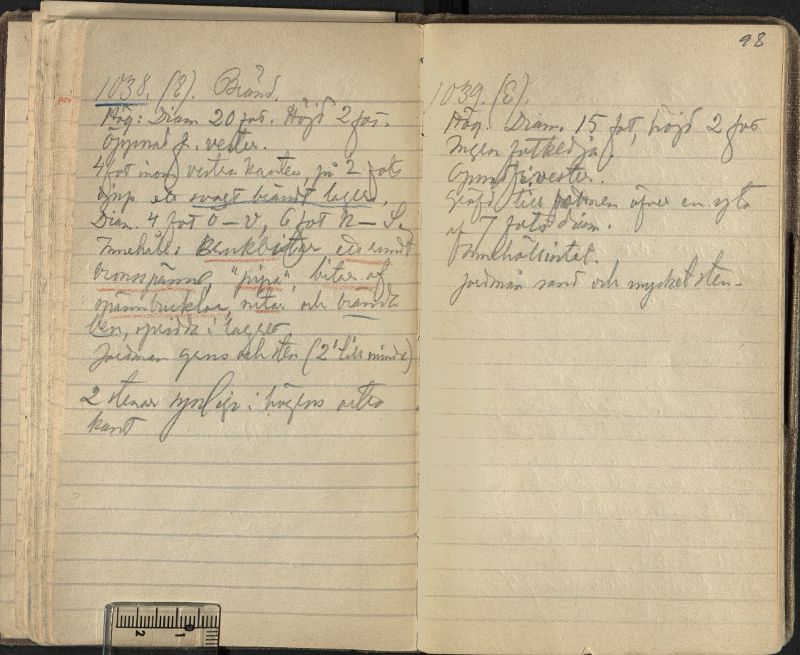 1038. (E). Bränd.
Hög: Diam 20 fot. Höjd 2 fot.
Öppnad fr. vester.
4 fot inom vestra kanten, på 2 fots
djup ett svagt brändt lager,
Diam. 4 fot O – V, 6 fot N – S.
Innehåll: Benkbitar rundt
bronsspänne, "pipa", bitar af
spännbucklor, nitar och brändt
ben, spridda i lagret
Jordmån grus och sten (2' till mindre)
2 stenar synliga i högens östra
kant
98
1039. (E).
Hög. Diam. 15 fot, höjd 2 fot
Ingen fotkedja.
Öpnad fr. vester.
Gräfd till botnen öfver en yta
af 7 fots diam.
Innehöll intet.
Jordmån sand och mycket sten.
2 1 0